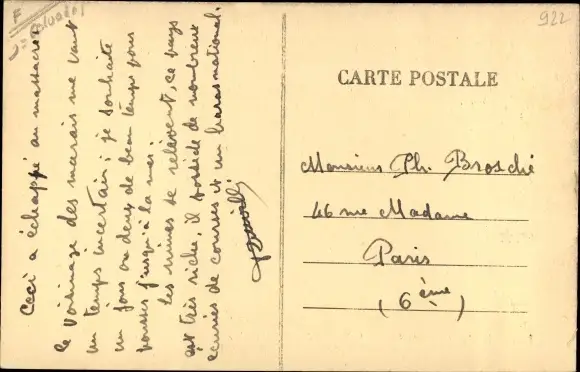 F
Calvados
922
Ceci a échappé au massacre
le voisinage des marais me vaut
un temps incertain ; je souhaite
un jour ou deux de beau temps pour
pousser jusqu'à la mer.
les ruines se relèvent, ce pays
est très riche, il possède de nombreux
écuries de courses et un haras national.
CARTE POSTALE
Monsieur Ph. Brosché
46 rue Madame
Paris
(6ème)